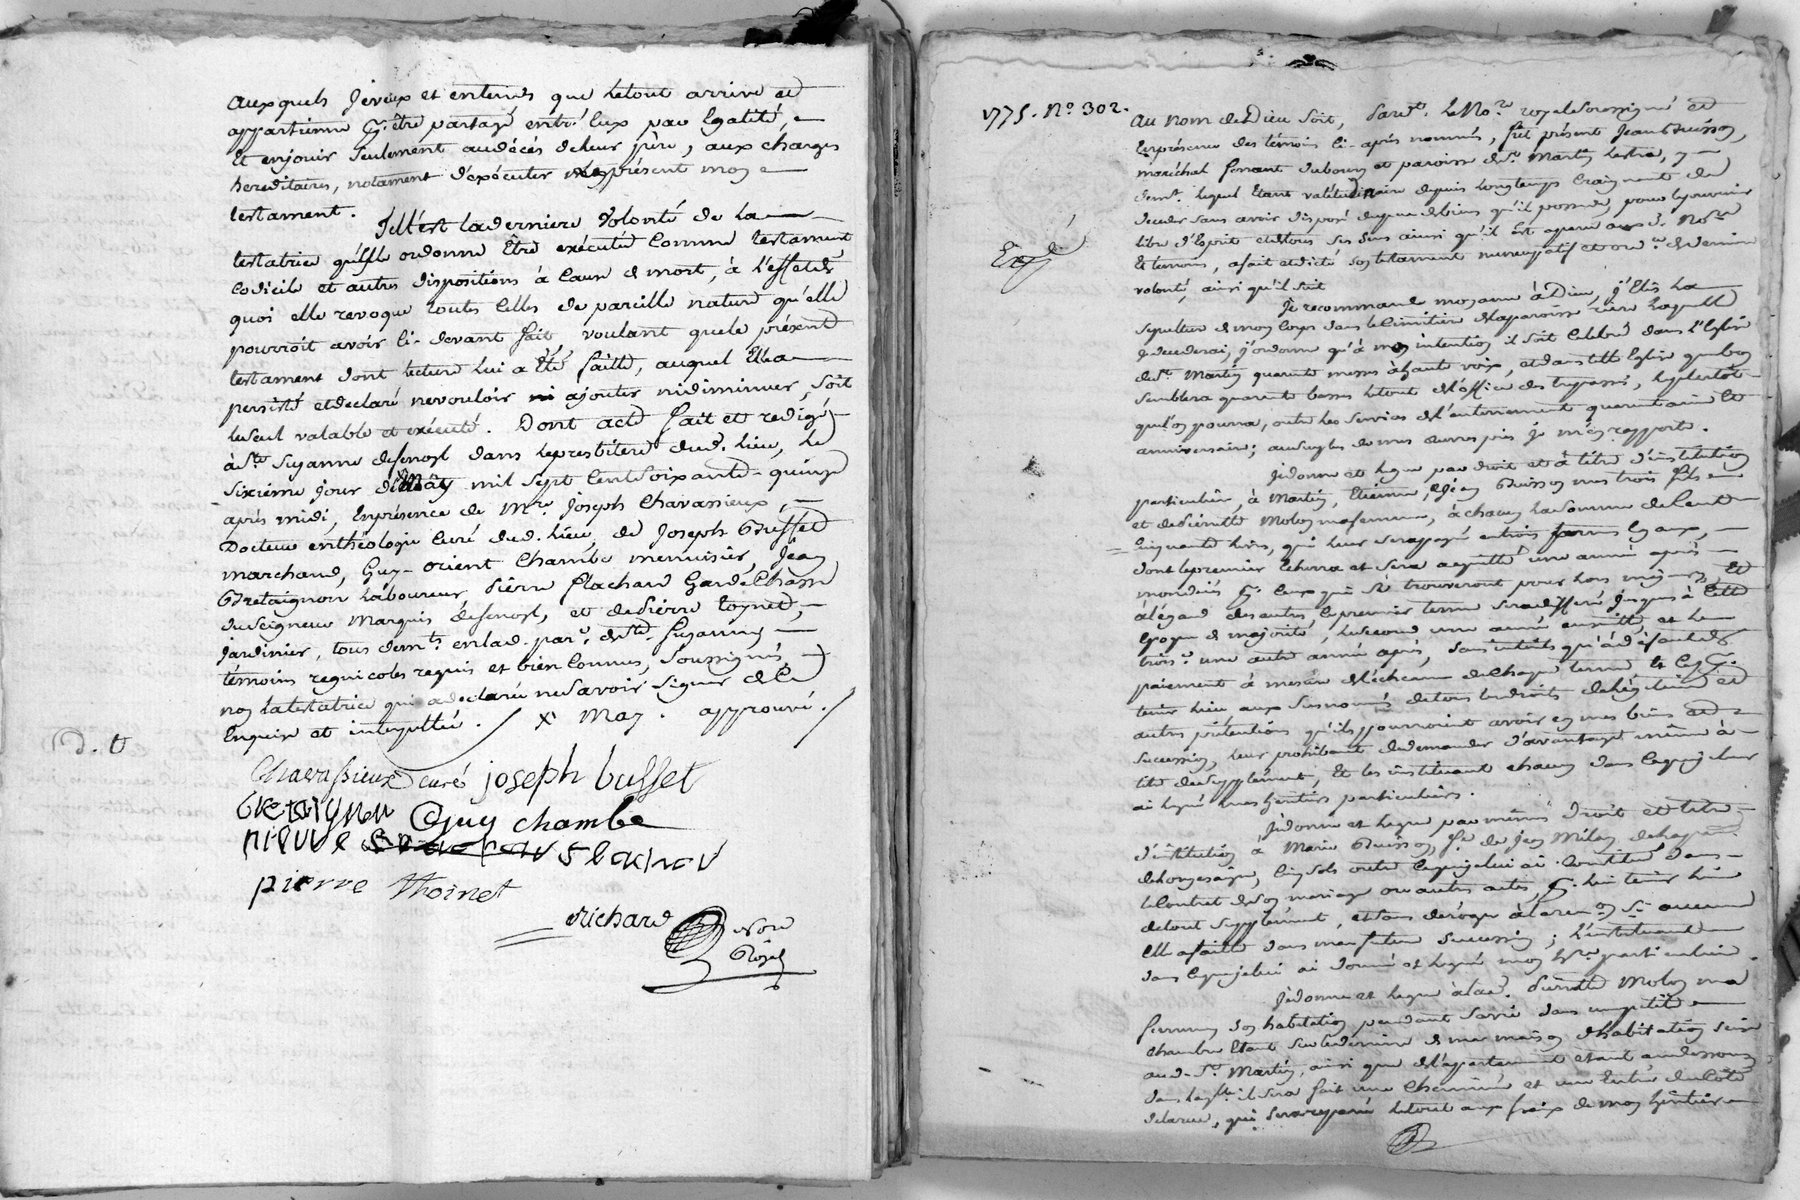 auxquels je veux et entends que le tout arrive et
appartienne pr. être partagé entr'eux par Egalité,
Et en jouir seulement au décès de leur père, aux charges
hereditaires, notament d'exécuter le présent mon
testament.
Telle est la derniere Volonté de la
testatrice qu'elle ordonne Être exécutée Comme testament
Codicile et autres dispositions à Cause de mort, à l'effet de
quoi elle revoque toutes Celles de pareille nature qu'elle
pourroit avoir Ci-devant fait, voulant que le présent
testament dont lecture lui a Eté faitte, auquel Elle a
persisté et declaré ne vouloir ni ajouter ni diminuer, soit
le seul valable et exécuté. Dont acte fait et redigé
à Ste. Suzanne dans le presbitere dud. lieu, le
sixième jour de May mil sept Cent soixante-quinze
après midi, En présence de Mre. Joseph Chavassieux,
Docteur en théologie Curé dud. lieu, de Joseph Busset
marchand, Guy-orient Chambe menuisier, Jean
Bretaignon laboureur, Pierre Flachard Garde Chasse
du Seigneur Marquis, et de Pierre toynet,
jardinier, tous demts. en lad. parse. de Ste. Suzanne
témoins regnicoles requis et bien Connus, soussignés,
non la testatrice qui a declaré ne savoir signer de ce
Enquise et interpellée. / x May. approuvé. /
D. t
Chavassieux curé joseph busset
bretaignon Guy chambe
pierre flachar
pierre thoinet
Richard
Nore
Royal
1775. No. 302.
Au nom de Dieu soit, Pardt. le Nore. royal soussigné et
En présence des témoins Ci-après nommés, fut présent Jean Buisson,
maréchal ferrant du bourg et paroisse de St. Martin Lestra, y
demt. lequel Etant valétudinaire depuis longtemps Craignant de
deceder sans avoir disposé du peu de biens qu'il possede, pour le pouvoir
libre d'Esprit et de tous ses sens ainsi qu'il Est aparu aud. Nore.
Et temoins, a fait et dicté son testament nuncupatif et ordre. de derniere
volonté, ainsi qu'il suit
Expé
Je recommande mon ame à Dieu, j'Elis la
sepulture de mon Corps dans le Cimitiere de la paroisse riere laquelle
je decederai, j'ordonne qu'à mon intention il soit Celebré dans l'Eglise
de St. Martin quarante messes à haute voix, et dans telle Eglise que bon
semblera quarante basses le tout de l'office des trepassés, le plutôt
qu'on pourra, outre les services de l'enterrement quarantaine Et
anniversaire; au surplus de mes œuvres pies je m'en rapporte.
Je donne et legue par droit et à titre d'institution
particuliere, à Martin, Etienne, & Jean Buisson mes trois fils
et de Pierrette Molon ma femme, à chacun la somme de Cent
Cinquante livres, qui leur sera payé en trois termes Egaux,
dont le premier Echerra et sera acquitté une année après
mon décès pr. Ceux qui se trouveront pour lors majeurs, Et
à l'égard des autres, le premier terme sera differé jusques à Cette
Epoque de majorité, le second une année ensuitte, et le
trois e. une autre année après, sans intérêts qu'à défaut de
paiement à mesure de l'échéance de Chaque terme Et Ce pr.
tenir lieu aux susnommés de tous les droits de légitime et
autres prétentions qu'ils pourroient avoir en mes biens et
succession, leur prohibant de demander d'avantage même à
titre de supplément, Et les instituant chacun dans Ce que je leur
ai legué mes héritiers particuliers.
Je donne et legue par mêmes Droit et titre
d'institution à Marie Buisson, fe. de Jean Milan
de Longesaigne, Cinq sols outre Ce que je lui ai Constitué dans
le Contrat de son mariage ou autres actes, pr. lui tenir lieu
de tout supplément, et sans déroger à la renon. si aucune
Elle a faitte dans ma future succession; l'instituant
dans Ce que je lui ai donné et legué mon hére. particuliere.
Je donne et legue à lad. Pierrette Molon ma
femme son habitation pendant sa vie dans une petite
chambre Etant sur le derrière de ma maison d'habitation scise
aud. St. Martin, ainsi que de l'appartement étant au dessous
dans laqlle. il sera fait une Cheminée et une Entrée du Côté
de la rue, qui sera reparé le tout aux fraix de mon héritier